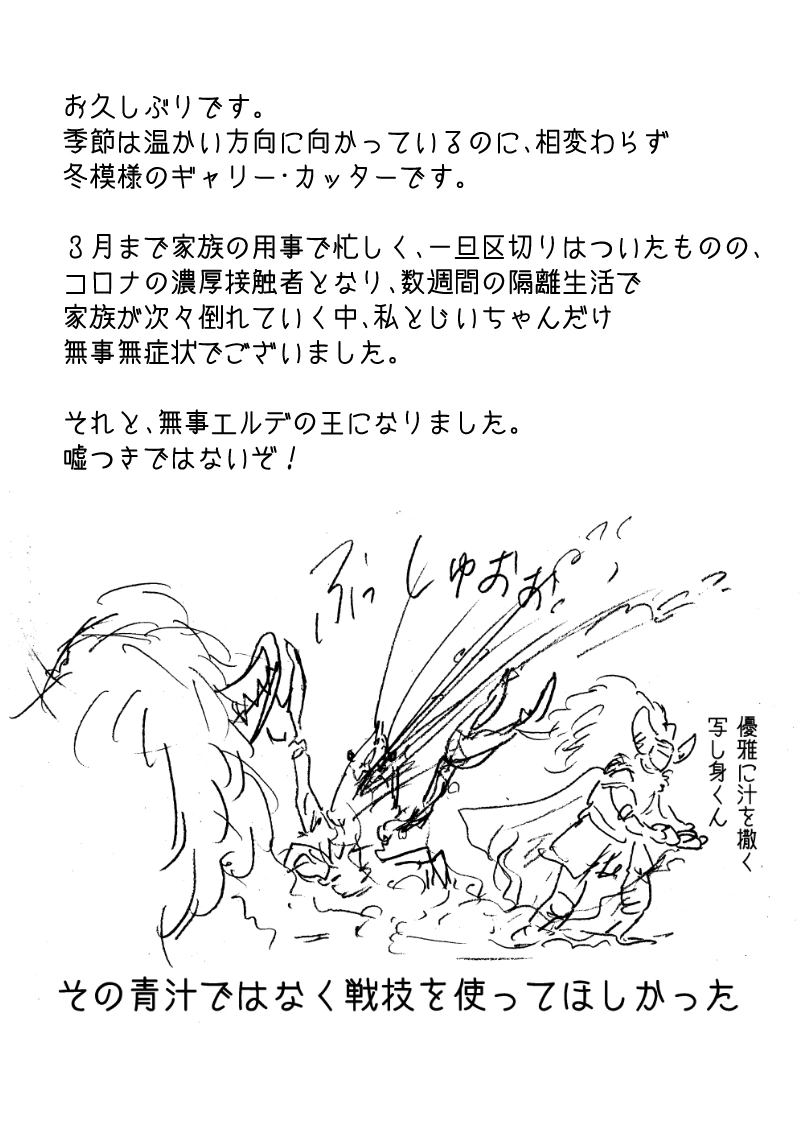 お久しぶりです。
季節は温かい方向に向かっているのに、相変わらず
冬模様のギャリー・カッターです。
3月まで家族の用事で忙しく、一旦区切りはついたものの、
コロナの濃厚接触者となり、数週間の隔離生活で
家族が次々倒れていく中、私とじいちゃんだけ
無事無症状でございました。
それと、無事エルデの王になりました。
嘘つきではないぞ！
ぶっしゅおぉぉ
優雅に汁を撒く
写し身くん
その青汁ではなく戦技を使ってほしかった